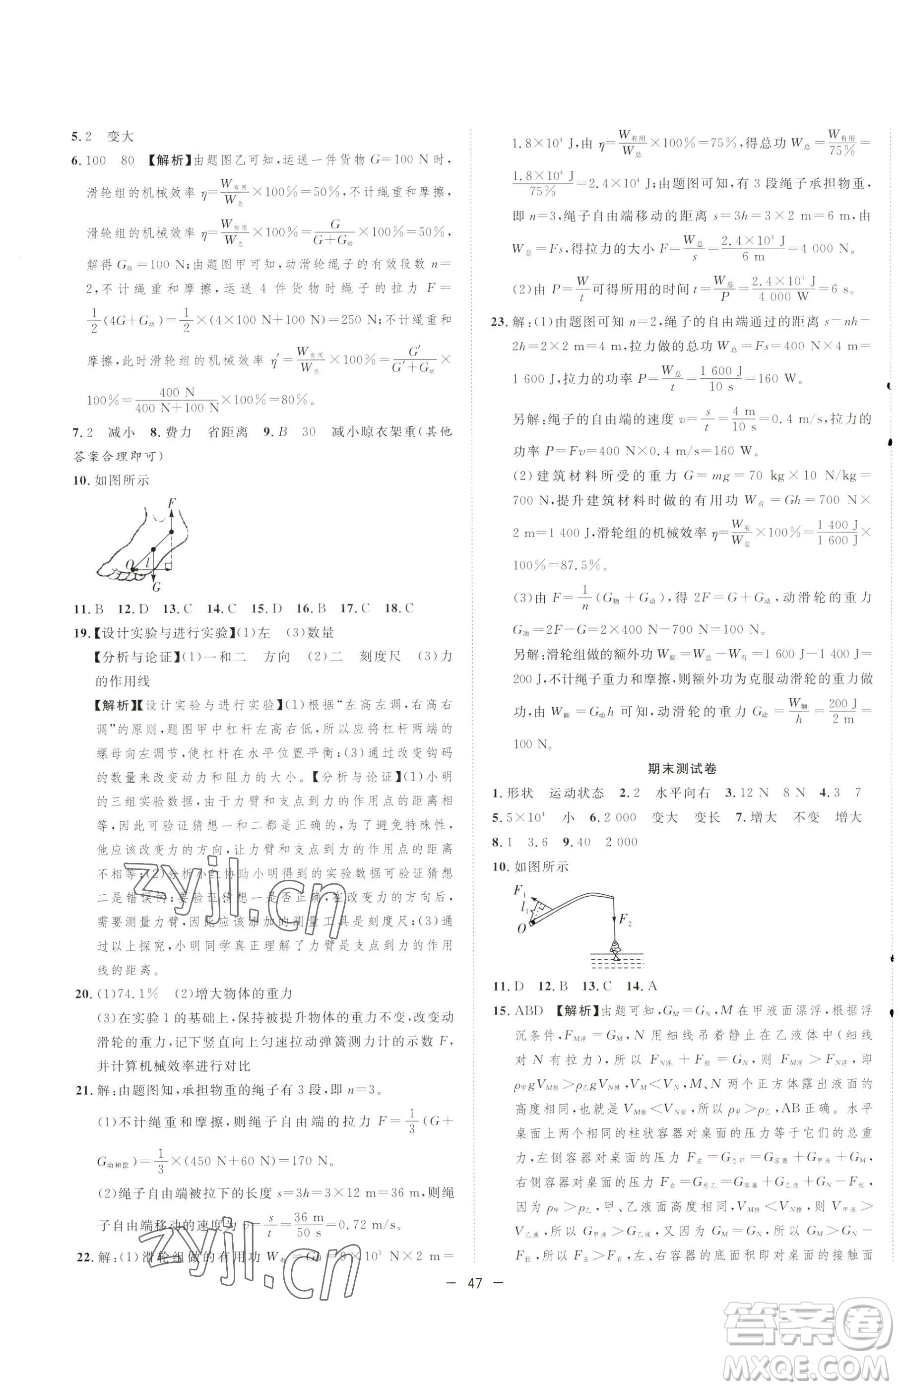 5. 2　变大
6. 100　80　【解析】由题图乙可知,运送一件货物 G=100 N 时,
滑轮组的机械效率 η=W有用/W总×100%=50%,不计绳重和摩擦,
滑轮组的机械效率 η=W有用/W总×100%=G/(G+G动)×100%=50%,
解得 G动=100 N;由题图甲可知,动滑轮绳子的有效段数 n=
2,不计绳重和摩擦,运送 4 件货物时绳子的拉力 F=
1/2(4G+G动)=1/2×(4×100 N+100 N)=250 N;不计绳重和
摩擦,此时滑轮组的机械效率 η′=W有用/W总×100%=G′/(G′+G动)×
100%=400 N/(400 N+100 N)×100%=80%。
7. 2　减小　8. 费力　省距离　9. B　30　减小晾衣架重(其他
答案合理即可)
10. 如图所示
F
O
l
G
11. B　12. D　13. C　14. C　15. D　16. B　17. C　18. C
19.【设计实验与进行实验】(1)左　(3)数量
【分析与论证】(1)一和二　方向　(2)二　刻度尺　(3)力
的作用线
【解析】【设计实验与进行实验】(1)根据“左高左调,右高右
调”的原则,题图甲中杠杆左高右低,所以应将杠杆两端的
螺母向左调节,使杠杆在水平位置平衡;(3)通过改变钩码
的数量来改变动力和阻力的大小。【分析与论证】(1)小明
的三组实验数据,分析发现力臂和支点到力的作用点的距离
相等,可验证猜想一和二都是正确的,为了避免特殊性,
他应该改变力的方向,使力臂和支点到力的作用点的距离
不相等;(2)分析小红协助小明得到的实验数据可验证猜想
二是错误的;要验证猜想一正确,在改变力的方向后,
需要测量力臂,因此应该添加的测量工具是刻度尺;(3)
通过以上探究,小明同学真正理解了力臂是支点到力的作用
线的距离。
20. (1)74.1%　(2)增大物体的重力
(3)在实验 1 的基础上,保持被提升物体的重力不变,改变动
滑轮的重力,记下竖直向上匀速拉动弹簧测力计的示数 F,
并计算机械效率进行对比
21. 解:由题图知,承担物重的绳子有 3 段,即 n=3。
(1)不计绳重和摩擦,则绳子自由端的拉力 F=1/3(G+
G动和筐)=1/3×(450 N+60 N)=170 N。
(2)绳子自由端被拉下的长度 s=3h=3×12 m=36 m,则绳
子自由端移动的速度为 v=s/t=36 m/50 s=0.72 m/s。
22. 解:(1)滑轮组做的有用功 W有=Gh=9×10³ N×2 m=
1.8×10⁴ J,由 η=W有用/W总×100%=75%,得总功 W总=W有用/75%=
1.8×10⁴ J/75%=2.4×10⁴ J;由题图可知,有 3 段绳子承担物重,
即 n=3,绳子自由端移动的距离 s=3h=3×2 m=6 m,由
W总=Fs,得拉力的大小 F=W总/s=2.4×10⁴ J/6 m=4 000 N。
(2)由 P=W/t可得所用的时间 t=W总/P=2.4×10⁴ J/4 000 W=6 s。
23. 解:(1)由题图可知 n=2,绳子的自由端通过的距离 s=nh=
2h=2×2 m=4 m,拉力做的总功 W总=Fs=400 N×4 m=
1 600 J,拉力的功率 P=W总/t=1 600 J/10 s=160 W。
另解:绳子的自由端的速度 v=s/t=4 m/10 s=0.4 m/s,拉力的
功率 P=Fv=400 N×0.4 m/s=160 W。
(2)建筑材料所受的重力 G=mg=70 kg×10 N/kg=
700 N,提升建筑材料时做的有用功 W有=Gh=700 N×
2 m=1 400 J,滑轮组的机械效率 η=W有/W总×100%=1 400 J/1 600 J×
100%=87.5%。
(3)由 F=1/n(G物+G动),得 2F=G+G动,动滑轮的重力
G动=2F-G=2×400 N-700 N=100 N。
另解:滑轮组做的额外功 W额=W总-W有=1 600 J-1 400 J=
200 J,不计绳子重力和摩擦,则额外功为克服动滑轮的重力做
功,由 W额=G动h 可知,动滑轮的重力 G动=W额/h=200 J/2 m=
100 N。
期末测试卷
1. 形状　运动状态　2. 2　水平向右　3. 12 N　8 N　4. 3　7
5. 5×10⁴　小　6. 2 000　变大　变长　7. 增大　不变　增大
8. 1　3.6　9. 40　2 000
10. 如图所示
F₁
l₁
O
F₂
11. D　12. B　13. C　14. A
15. ABD　【解析】由题可知,GM=GN,M 在甲液面漂浮,根据浮
沉条件,FM浮=GM,N 用细线吊着静止在乙液体中(细线
对 N 有拉力),FN浮<GN,所以 FM浮>FN浮,即
ρ甲gVM排>ρ乙gVN排,由于 M、N 两个正方体露出液面的
高度相同,也就是 VM排<VN排,所以 ρ甲>ρ乙,AB正确。水平
桌面上的两个相同的柱状容器对桌面的压力等于它们的总重
力,左侧容器对桌面的压力 F左=G甲液+GM+G容器,
右侧容器对桌面的压力 F右=G乙液+GN+G容器-F拉,
因为水平桌面上,甲、乙液面相平,即 V甲液>
V乙液,所以 G甲液>G乙液,又因为 GM=GN,所以 F左>
F右,所以 F左>F右,左、右容器的底面积即对桌面的接触面
— 47 —
zyjl.cn
zyjl.cn
答案圈
MXQE.COM